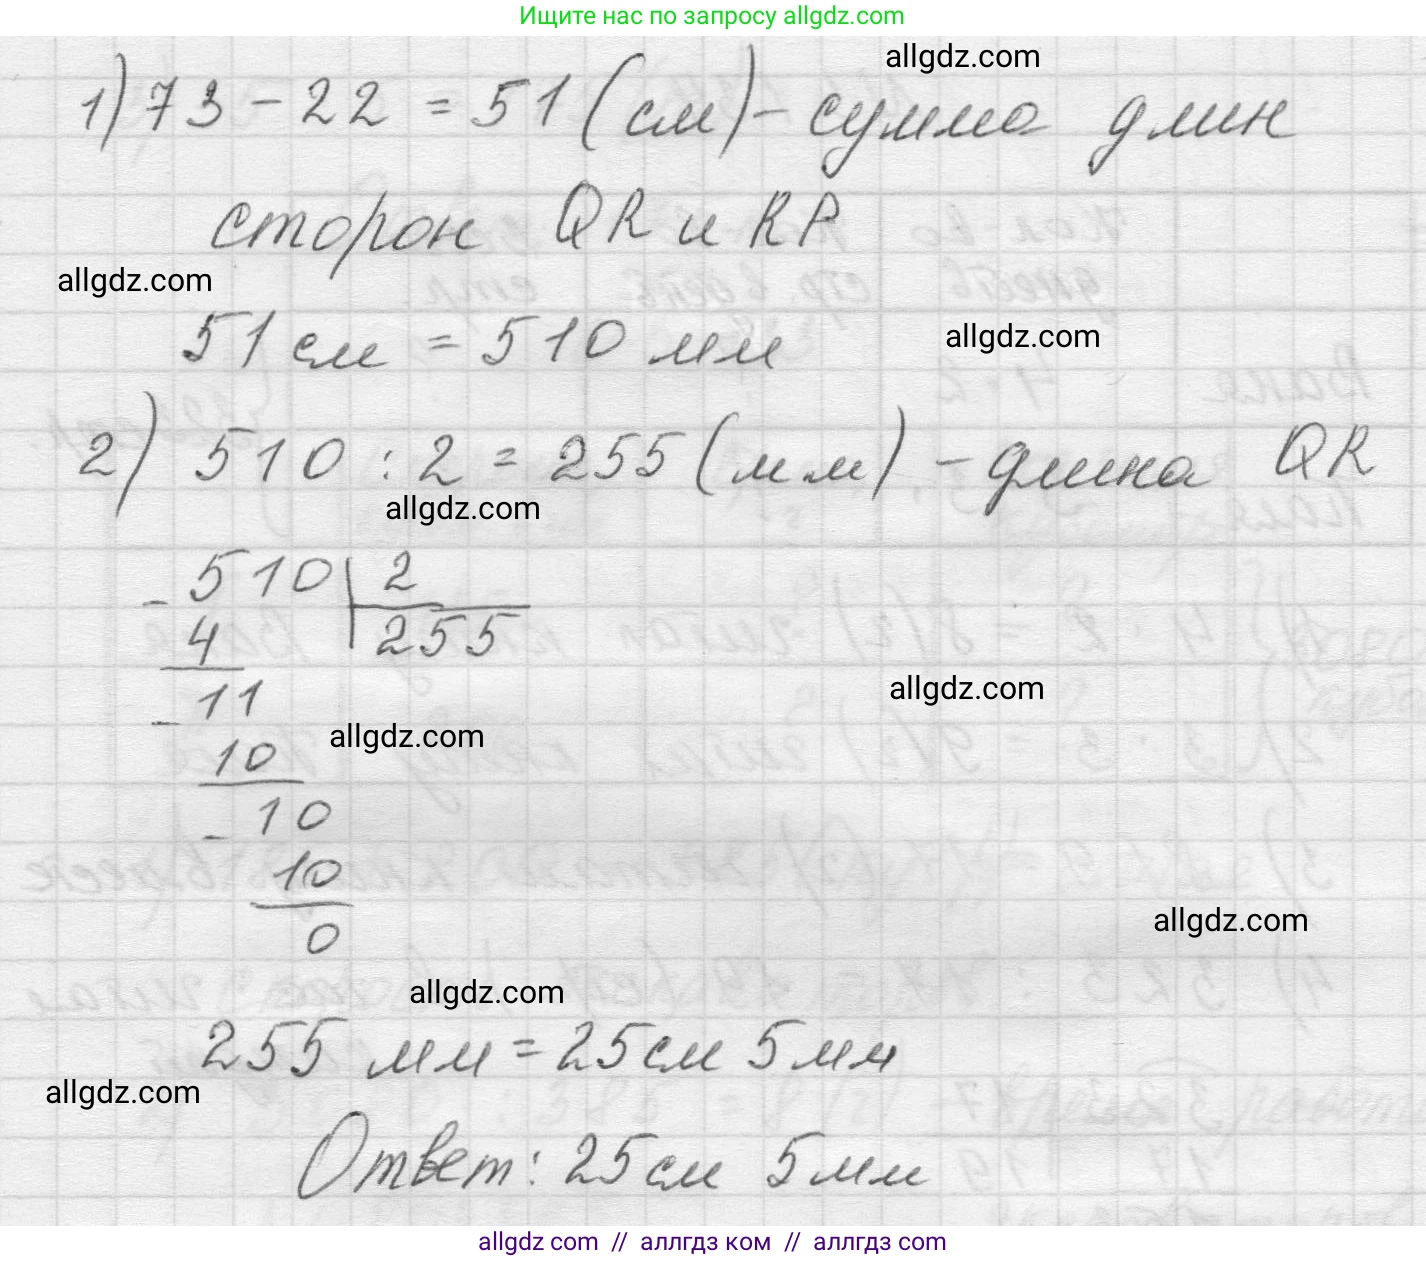 Ищите нас по запросу allgdz.com
allgdz.com
1) 73 - 22 = 51 (см) - сумма длин
сторон QR и RP
allgdz.com
51 см = 510 мм
allgdz.com
2) 510 : 2 = 255 (мм) - длина QR
allgdz.com
- 510 | 2
4 255
allgdz.com
- 11
allgdz.com
10
- 10
10
allgdz.com
0
allgdz.com
255 мм = 25 см 5 мм
allgdz.com
Ответ: 25 см 5 мм
allgdz com // аллгдз ком // аллгдз com